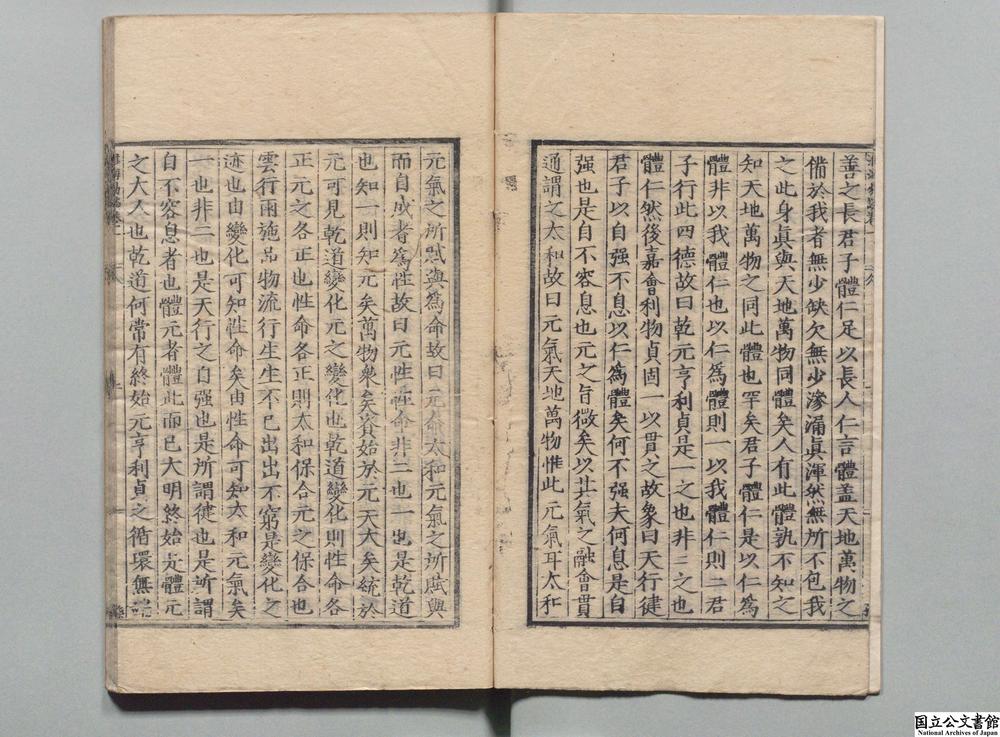 善之長君子體仁足以長人仁言體盖天地萬物之
備於我者無少缺欠無少滲漏眞渾然無所不包我
之此身眞與天地萬物同體矣人有此體孰不知之
知天地萬物之同此體也罕矣君子體仁是以仁爲
體非以我體仁也以仁爲體則一以我體仁則二君
子行此四德故曰乾元亨利貞是一之也非二之也
體仁然後嘉會利物貞固一以貫之故象曰天行健
君子以自强不息以仁爲體矣何不强夫何息是自
强也是自不容息也元之旨微矣以其氣之融會貫
通謂之太和故曰元氣天地萬物惟此元氣耳太和
元氣之所賦與爲命故曰元命太和元氣之所賦與
而自成者爲性故曰元性性命非二也一也是乾道
也知一則知元矣萬物衆矣資始於元天大矣統於
元可見乾道變化元之變化也乾道變化則性命各
正元之各正也性命各正則太和保合元之保合也
雲行雨施品物流行生生不已出出不窮是變化之
迹也由變化可知性命矣由性命可知太和元氣矣
一也非二也是天行之自强也是所謂健也是所謂
自不容息者也體元者體此而已大明終始是體元
之大人也乾道何常有終始元亨利貞之循環無端
国立公文書館
National Archives of Japan